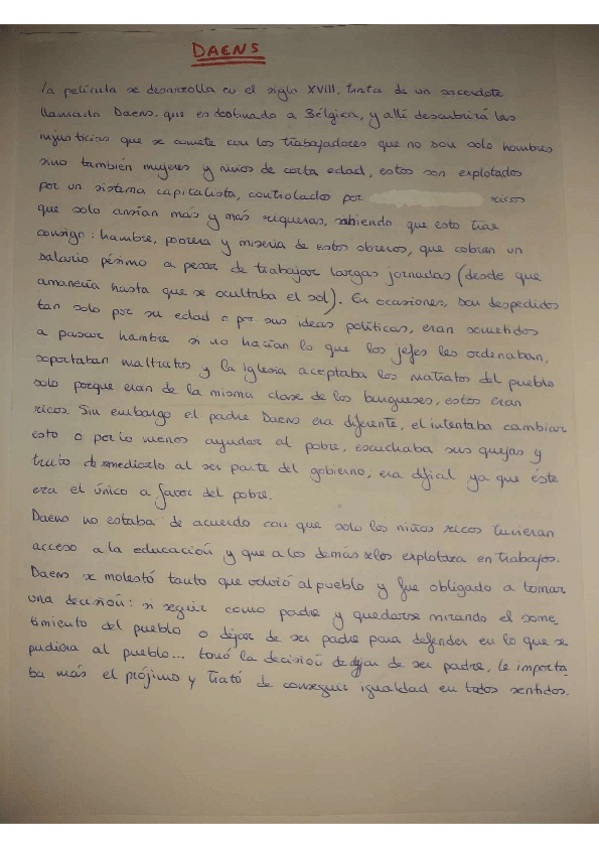 DAENS
La película se desarrolla en el siglo XVIII, trata de un sacerdote
llamado Daens, que es destinado a Bélgica, y allí descubrirá las
injusticias que se comete con los trabajadores que no son solo hombres
sino también mujeres y niños de corta edad, estos son explotados
por un sistema capitalista, controlados por ricos
que solo ansían más y más riquezas, sabiendo que esto trae
consigo: hambre, pobreza y miseria de estos obreros, que cobran un
salario pésimo a pesar de trabajar largas jornadas (desde que
amanecía hasta que se ocultaba el sol). En ocasiones, son despedidos
tan solo por su edad o por sus ideas políticas, eran sometidos
a pasar hambre si no hacían lo que los jefes les ordenaban,
soportaban maltratos y la iglesia aceptaba los matratos del pueblo
solo porque eran de la misma clase de los burgueses, estos eran
ricos. Sin embargo el padre Daens era diferente, el intentaba cambiar
esto o por lo menos ayudar al pobre, escuchaba sus quejas y
trato de remediarlo al ser parte del gobierno, era difícil ya que éste
era el único a favor del pobre.
Daens no estaba de acuerdo con que solo los niños ricos tuvieran
acceso a la educación y que a los demás los explotaza en trabajos.
Daens se molestó tanto que volvió al pueblo y fue obligado a tomar
una decisión: si seguir como padre y quedarse mirando el some
timiento del pueblo o dejar de ser padre para defender en lo que se
pudiera al pueblo... tomó la decisión de dejar de ser padre, le importa
ba más el prójimo y trató de conseguir igualdad en todos sentidos.